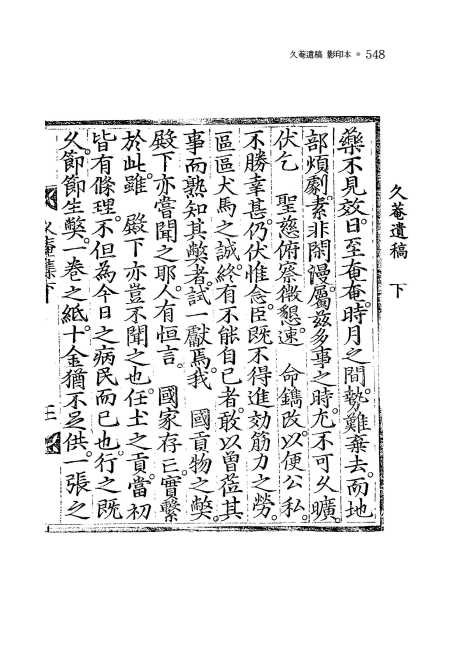 久菴遺稿 影印本 ◉ 548
久菴遺稿 下
藥不見效。日至奄奄。時月之間。勢難棄去。而地
部煩劇。素非閑漫。屬玆多事之時。尤不可久曠。
伏乞 聖慈俯察微懇。速 命鐫改。以便公私。
不勝幸甚。仍伏惟念。臣旣不得進効筋力之勞。
區區犬馬之誠。終有不能自已者。敢以曾莅其
事而熟知其弊者。試一獻焉。我 國貢物之弊。
殿下亦嘗聞之耶。人有恒言。 國家存亡。實繫
於此。雖 殿下亦豈不聞之也。任土之貢。當初
皆有條理。不但爲今日之病民而已也。行之旣
久。節節生弊。一卷之紙。十金猶不足供。一張之
久菴集下